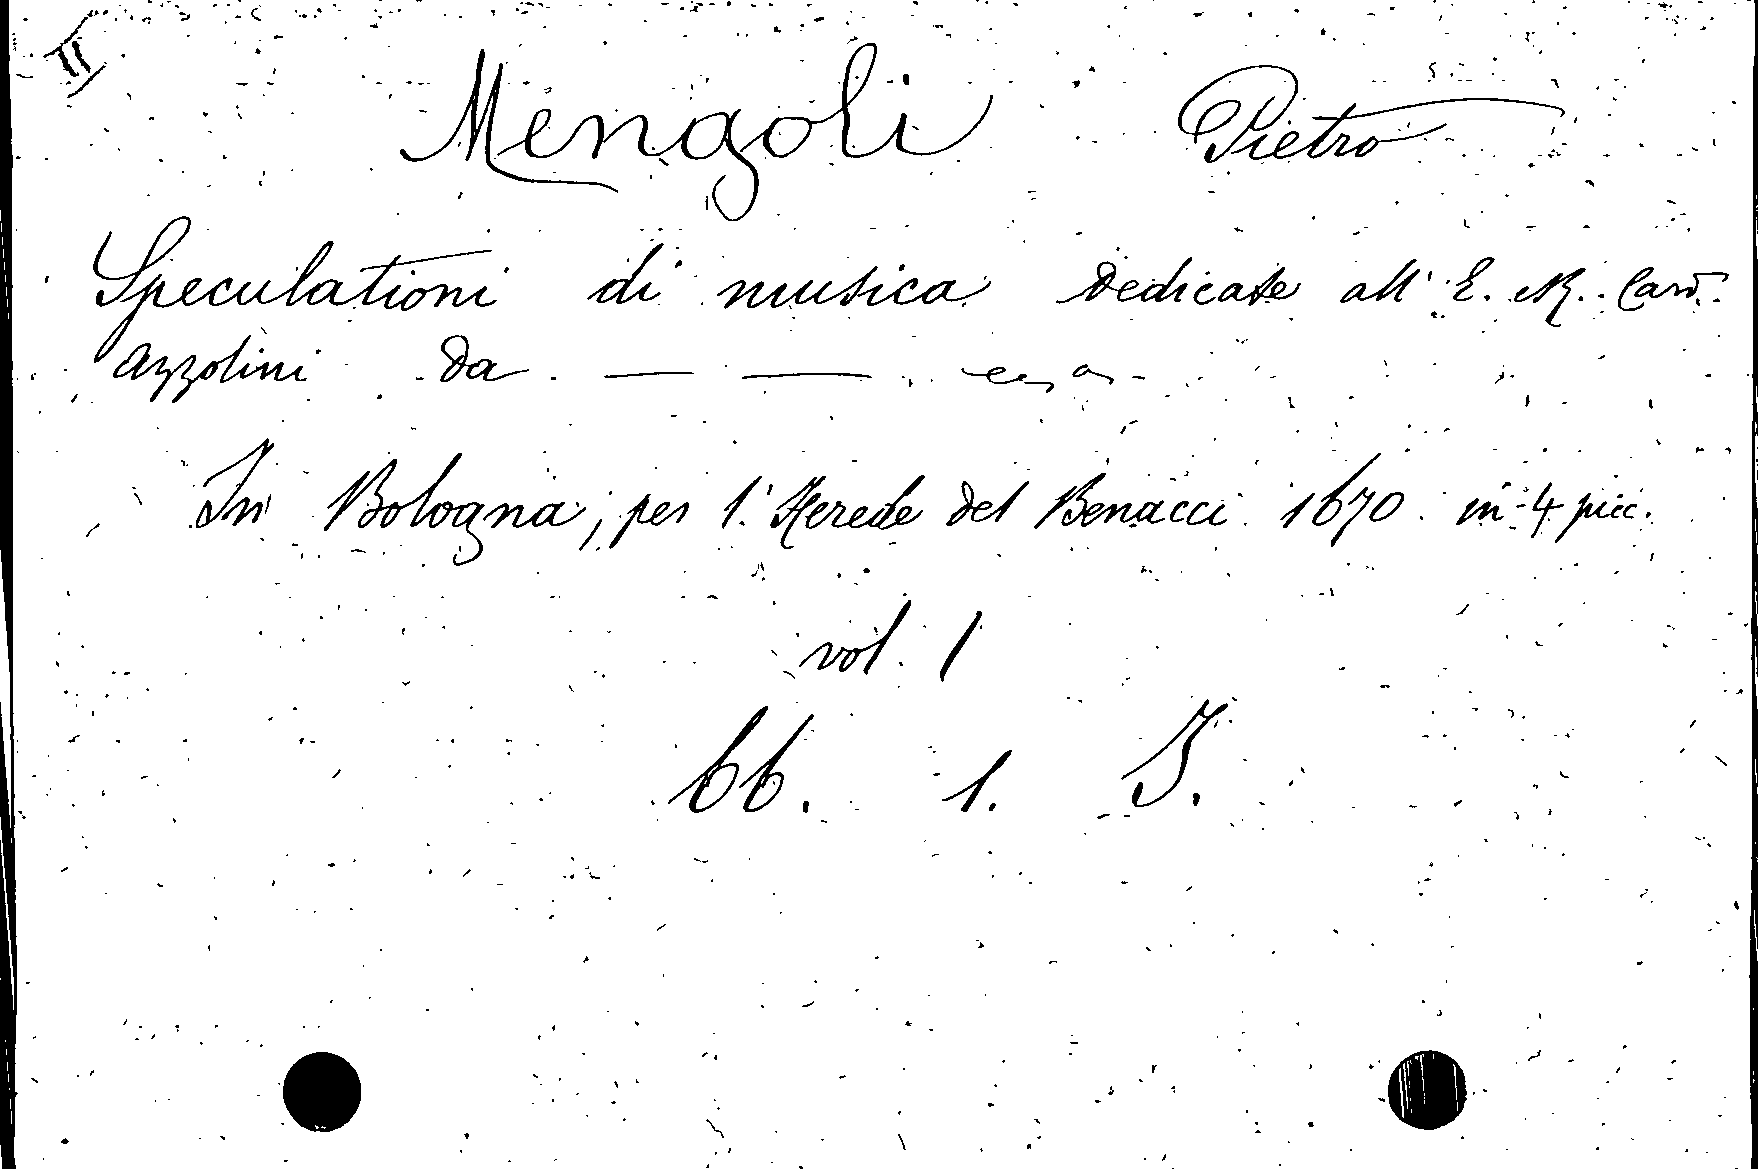 II
Mengoli Pietro
Speculationi di musica dedicate all' E. R. Card.
Azzolini da — —
In Bologna, per l'Herede del Benacci 1670 in-4 picc.
vol. 1
bb. 1. I.